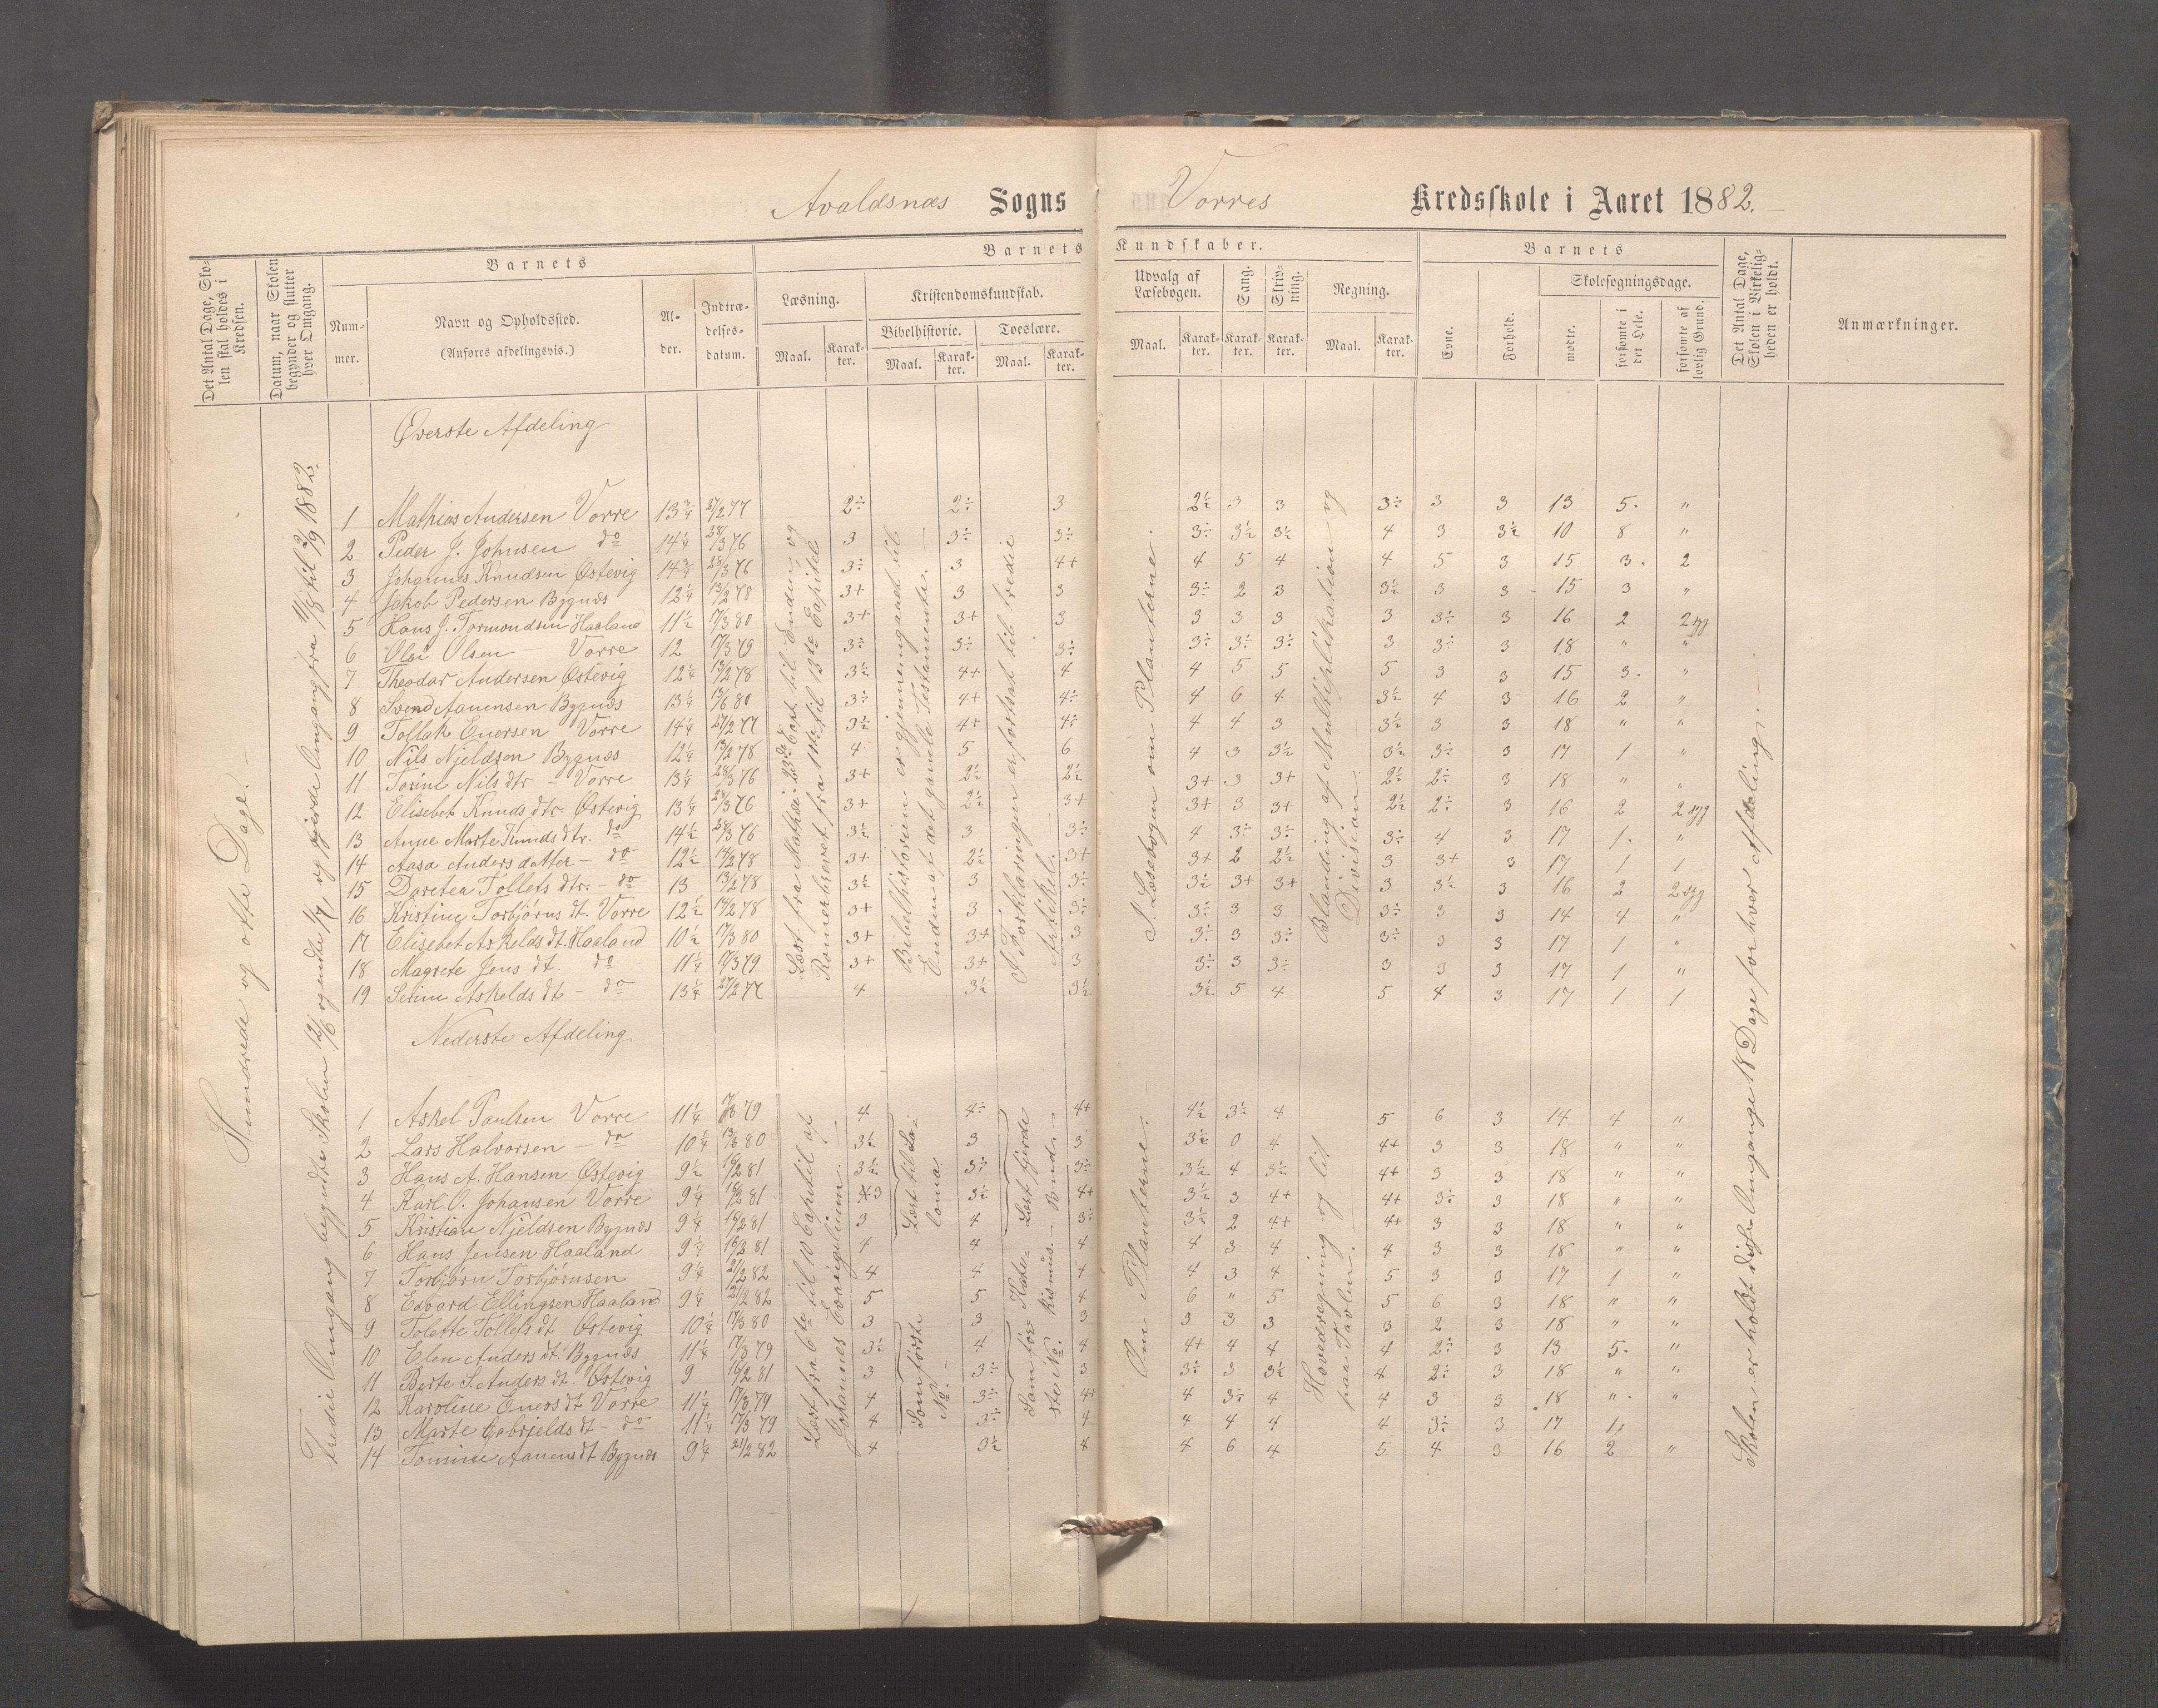 Avaldsnæs Sogns
Vorres Kredsskole i Aaret 1882.
Det Antal Dage, Skolen skal holdes i Kredsen.
Datum, naar Skolen begynder og slutter hver Omgang.
Barnets
Nummer.
Navn og Opholdssted.
(Anføres afdelingsvis.)
Alder.
Indtrædelsesdatum.
Barnets Kundskaber.
Læsning.
Maal. Karakter.
Kristendomskundskab.
Bibelhistorie.
Maal. Karakter.
Troeslære.
Maal. Karakter.
Udvalg af Læsebogen.
Maal. Karakter.
Sang.
Karakter.
Skrivning.
Karakter.
Regning.
Maal. Karakter.
Barnets
Evne.
Forhold.
Skolesøgningsdage.
mødte.
forsømte i det Hele.
forsømte af lovlig Grund.
Det Antal Dage, Skolen i Virkeligheden er holdt.
Anmærkninger.
Hundrede og otte Dage.
Tredie Omgang begyndte Skolen 12/6 og endte 1/7, og fjerde Omgang fra 14/8 til 2/9 1882.
Øverste Afdeling
1 Mathias Andersen Vorre 13 3/4 27/2 77 2÷ 2÷ 3 2½ 3 3 3÷ 3 3 13 5. "
2 Peder J. Johnsen do 14¼ 28/3 76 3 3÷ 3÷ 3÷ 3½ 3½ 4 3 3½ 10 8 "
3 Johannes Knudsen Østevig 14 3/4 28/3 76 3÷ 3 4+ 4 5 4 4 5 3 15 3. 2
4 Jakob Pedersen Bygnæs 12¼ 13/2 78 3+ 3 3 3÷ 2 3 3½ 3 3 15 3 "
5 Hans J. Tormondsen Haaland 11½ 17/3 80 3+ 3+ 3 3 3 3 3 3÷ 3 16 2 2 syg
6 Olai Olsen – Vorre 12 17/3 79 3÷ 3÷ 3÷ 3÷ 3÷ 3÷ 3 3÷ 3 18 " "
7 Theodor Andersen Østevig 12¼ 13/2 78 3½ 4+ 4 4 5 5 5 3 3 15 3. "
8 Svend Aanensen Bygnæs 13¼ 13/6 80 3÷ 4+ 4÷ 4 6 4 3½ 4 3 16 2 "
9 Tollak Enersen Vorre 14¼ 27/2 77 3½ 4+ 4÷ 4 4 3 3½ 3 3 18 " "
10 Nils Njeldsen Bygnæs 12¼ 13/2 78 4 5 6 4 3 3½ 3½ 3÷ 3 17 1 "
11 Torine Nils dtr – Vorre 13¼ 28/3 76 3+ 2½ 2½ 3+ 3 3+ 2½ 2÷ 3 18 " "
12 Elisebet Knuds dtr. Østevig 13¼ 28/3 76 3+ 2½ 3+ 3+ 3 3+ 2½ 2÷ 3 16 2 2 syg
13 Anne Marte Knuds dtr. do 14½ 28/3 76 3½ 3 3÷ 4 3÷ 3÷ 3÷ 4 3 17 1. "
14 Aasa Anders datter – do 12½ 14/2 78 3+ 2½ 3+ 3+ 2 2½ 3 3+ 3 17 1 1
15 Dorotea Tollefs dtr. – do 13 13/2 78 3½ 3 3÷ 3½ 3+ 3+ 3 3½ 3 16 2 2 syg
16 Kristine Torbjørns dt. Vorre 12½ 14/2 78 3+ 3 3÷ 3÷ 3 3 3÷ 3 3 14 4 "
17 Elisebet Askelds dt. Haaland 10½ 17/3 80 3+ 3+ 3 3÷ 3 3÷ 3÷ 3 3 17 1 "
18 Magrete Jens dt. do 11¼ 17/3 79 3+ 3+ 3 3÷ 3 3÷ 3 3 3 17 1 "
19 Serine Askelds dt – do 13¼ 27/2 77 4 3½ 3½ 3½ 5 4 5 4 3 17 1 1
Læst fra Mathæi 23de Capt. til Enden, og
Romerbrevet fra 1ste til 13de Capitel
Bibelhistorien er gjennemgaaet til
Enden af det gamle Testamente.
I Forklaringen er fortsat til tredie
Artikel.
I Læsebogen om Planterne.
Blanding af Multiplikation og
Division.
Nederste Afdeling
1 Askel Paulsen Vorre 11¼ 17/3 79 4 4÷ 4+ 4½ 3½ 4 5 6 3 14 4 "
2 Lars Halvorsen – do 10¼ 13/3 80 3½ 3 3 3½ 0 4 4+ 3 3 18 " "
3 Hans A. Hansen Østevig 9½ 16/2 81 3½ 3÷ 3÷ 3½ 4 3½ 4+ 3 3 18 " "
4 Karl O. Johansen Vorre 9¼ 16/2 81 3 3½ 4+ 3½ 3 4+ 4+ 3÷ 3 18 " "
5 Kristian Njeldsen Bygnæs 9¼ 16/2 81 3 4 3÷ 3½ 2 4+ 4+ 3 3 18 " "
6 Hans Jensen Haaland 9¼ 16/2 81 4 4 4 4 3 4 4 3 3 18 " "
7 Torbjørn Torbjørnsen 9¼ 21/2 82 4 4 4 4 3 4 5 3 3 17 1 "
8 Edvard Ellingsen Haaland 9¼ 21/2 82 5 5 4 6 " 5 5 6 3 18 " "
9 Tolette Tollefs dt Østevig 10¼ 17/3 80 3 3 3 3 3 3 3 2 3 18 " "
10 Elen Anders dt. Bygnæs 11¼ 17/3 79 3½ 4 4 4+ 4 4 4 2÷ 3 13 5. "
11 Berte S. Anders dt. Østevig 9 16/2 81 3 3÷ 3 3÷ 3 3½ 4 2÷ 3 18 " "
12 Karoline Eners dt Vorre 11¼ 17/3 79 4 3÷ 4+ 4 3÷ 4 4 3 3 18 " "
13 Marte Gabrields dt – do 11¼ 17/3 79 4 3÷ 4 4 4 4 4 3÷ 3 17 1
14 Tomine Aanens dt Bygnæs 9¼ 21/2 82 4 3½ 4 4 6 4 5 4 3 16 2 "
Læst fra 6te til 10 Capitel af
Johannes Evangelium.
Læst til Salomo.
Som første No.
Læst fjerde Bud.
Katekismus.
Som første No.
Om Planterne.
Hovedregning og lit
paa Tavlen.
Skolen er holdt disse Omgange 18 Dage for hver Afdeling.